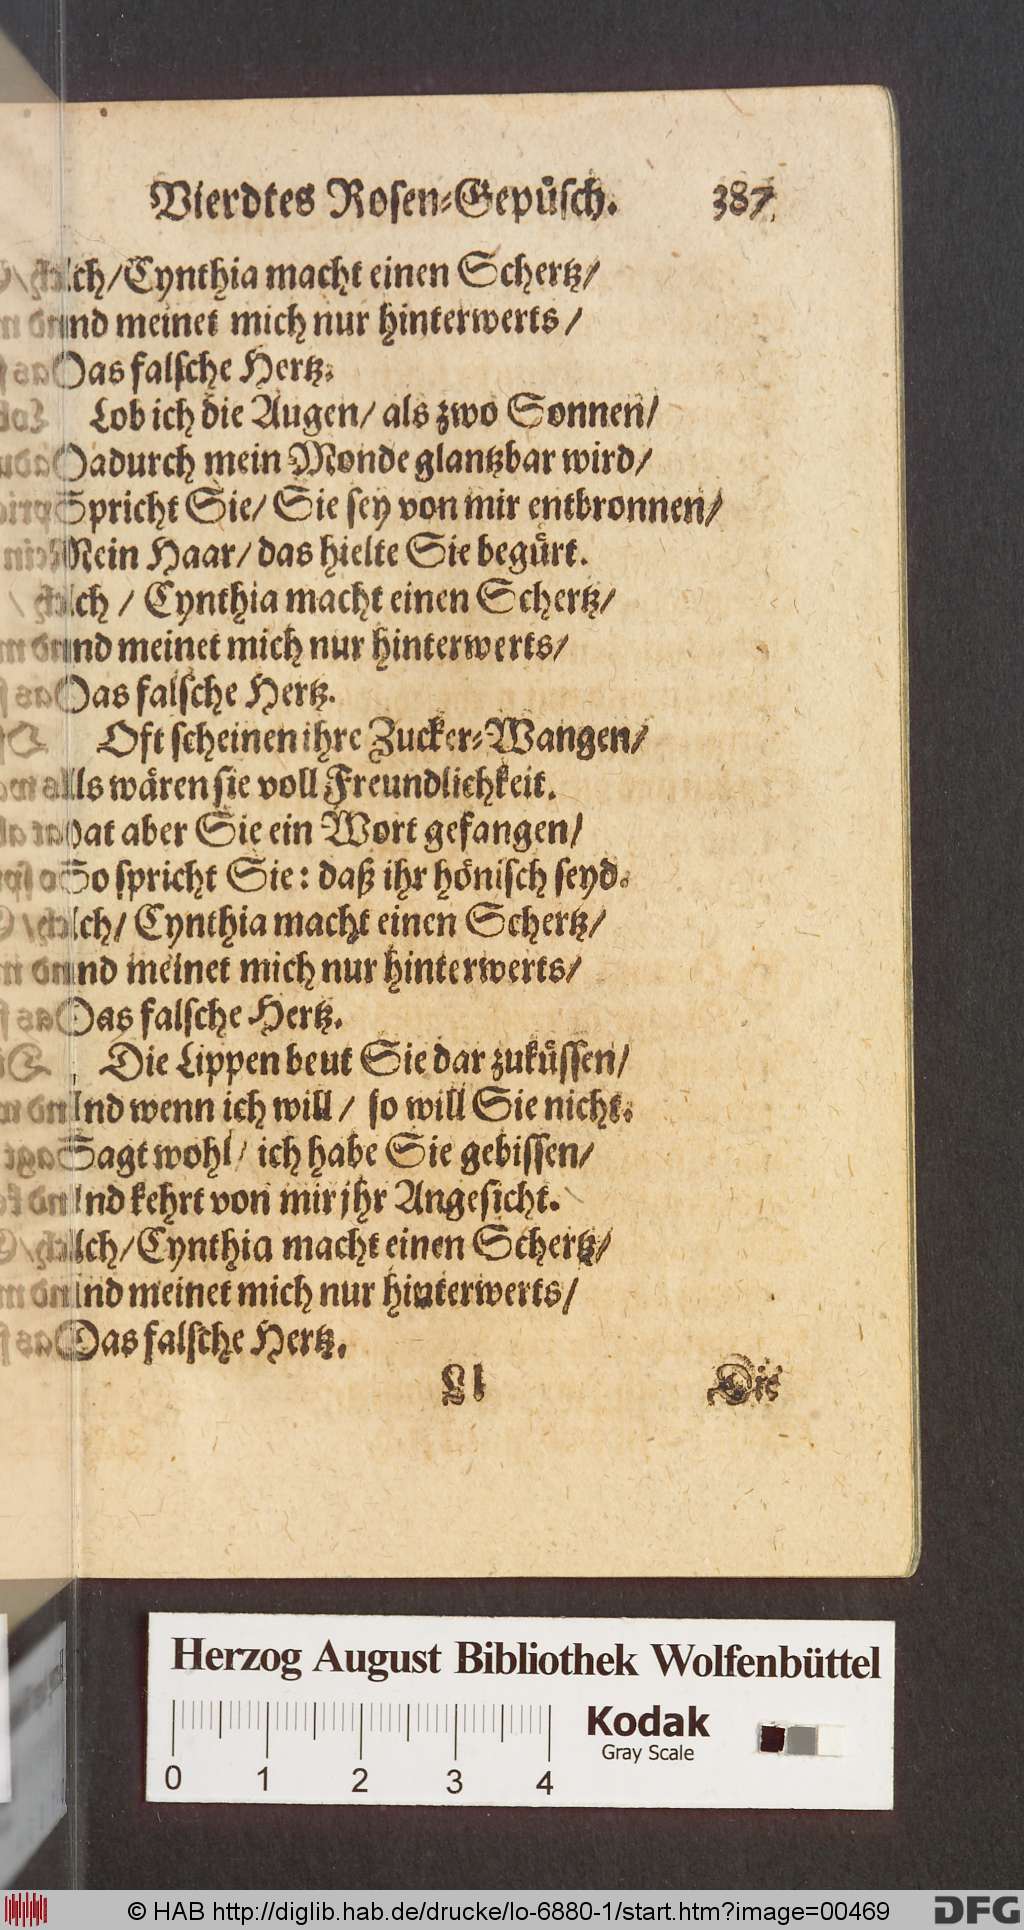 Vierdtes Rosen-Gepüsch. 387
Ach/Cynthia macht einen Schertz/
Und meinet mich nur hinterwerts/
Das falsche Hertz.
Lob ich die Augen/ als zwo Sonnen/
Dadurch mein Monde glantzbar wird/
Spricht Sie/ Sie sey von mir entbronnen/
Mein Haar/ das hielte Sie begürt.
Ach / Cynthia macht einen Schertz/
Und meinet mich nur hinterwerts/
Das falsche Hertz.
Oft scheinen ihre Zucker-Wangen/
Als wären sie voll Freundlichkeit.
Hat aber Sie ein Wort gefangen/
So spricht Sie: daß ihr hönisch seyd.
Ach/ Cynthia macht einen Schertz/
Und meinet mich nur hinterwerts/
Das falsche Hertz.
Die Lippen beut Sie dar zuküssen/
Und wenn ich will / so will Sie nicht.
Sagt wohl/ ich habe Sie gebissen/
Und kehrt von mir jhr Angesicht.
Ach/Cynthia macht einen Schertz/
Und meinet mich nur hinterwerts/
Das falsche Hertz.
Ll Die
Herzog August Bibliothek Wolfenbüttel
Kodak
Gray Scale
0 1 2 3 4
© HAB http://diglib.hab.de/drucke/lo-6880-1/start.htm?image=00469
DFG